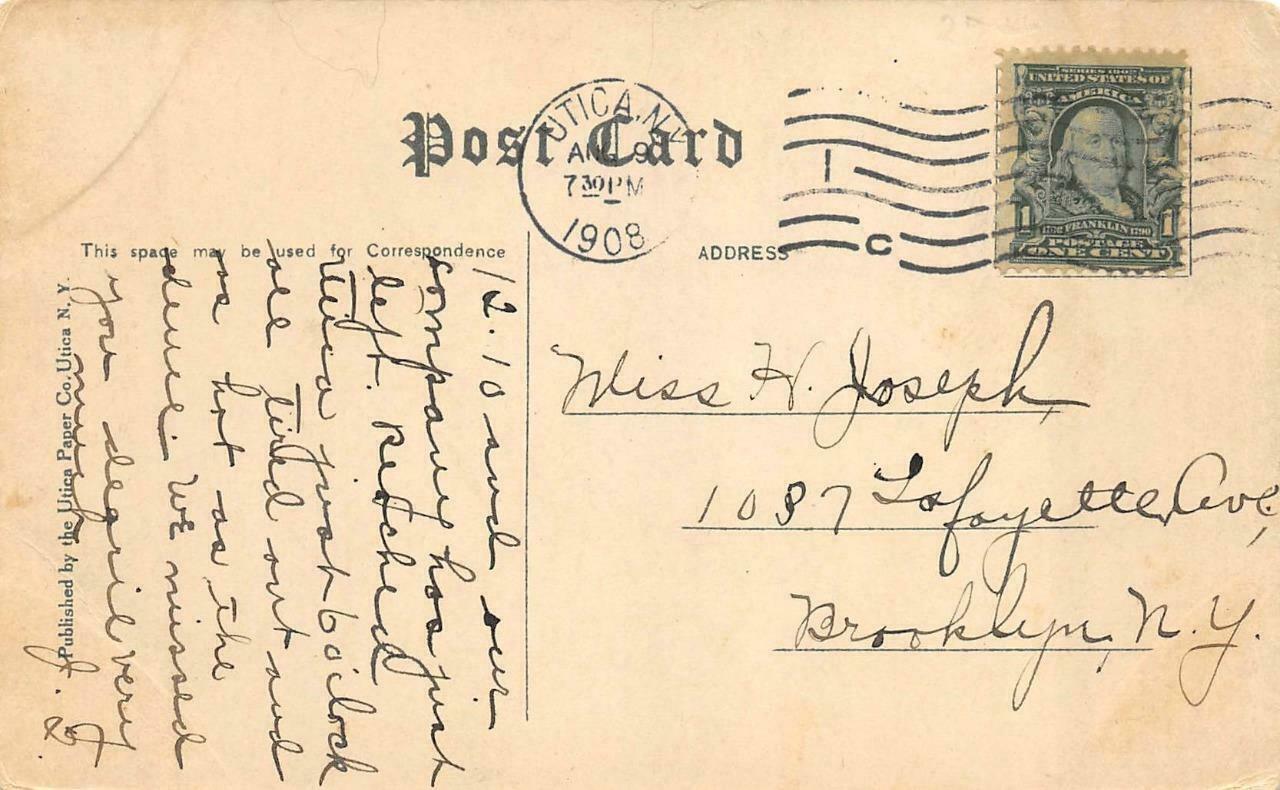 Post Card
UTICA, N.Y.
AUG 9
7 30 PM
1908
1
C
SERIES 1902
UNITED STATES OF
AMERICA
1 1
1706 FRANKLIN 1790
POSTAGE
ONE CENT
This space may be used for Correspondence
ADDRESS
12.10 and our
company has just
left. Retched
Utica just 6 o'clock
all tired out and
as hot as the
deuce. We missed
you
very
much
J. L.
Miss H. Joseph,
1037 Lafayette Ave,
Brooklyn, N. Y.
Published by the Utica Paper Co. Utica N. Y.